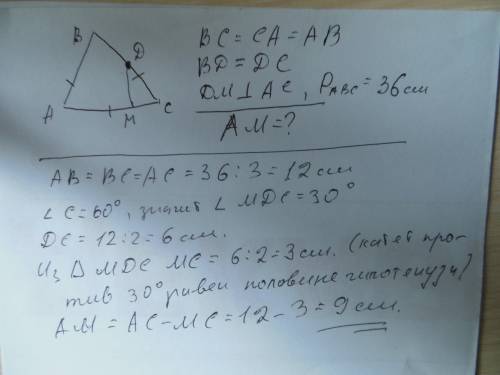 B
D
A
M
C
BC = CA = AB
BD = DC
DM ⊥ AC, P_ABC = 36 см
AM = ?
AB = BC = AC = 36 : 3 = 12 см
∠ C = 60°, значит ∠ MDC = 30°
DC = 12 : 2 = 6 см.
Из Δ MDC MC = 6 : 2 = 3 см. (катет про-
тив 30° равен половине гипотенузы)
AM = AC - MC = 12 - 3 = 9 см.